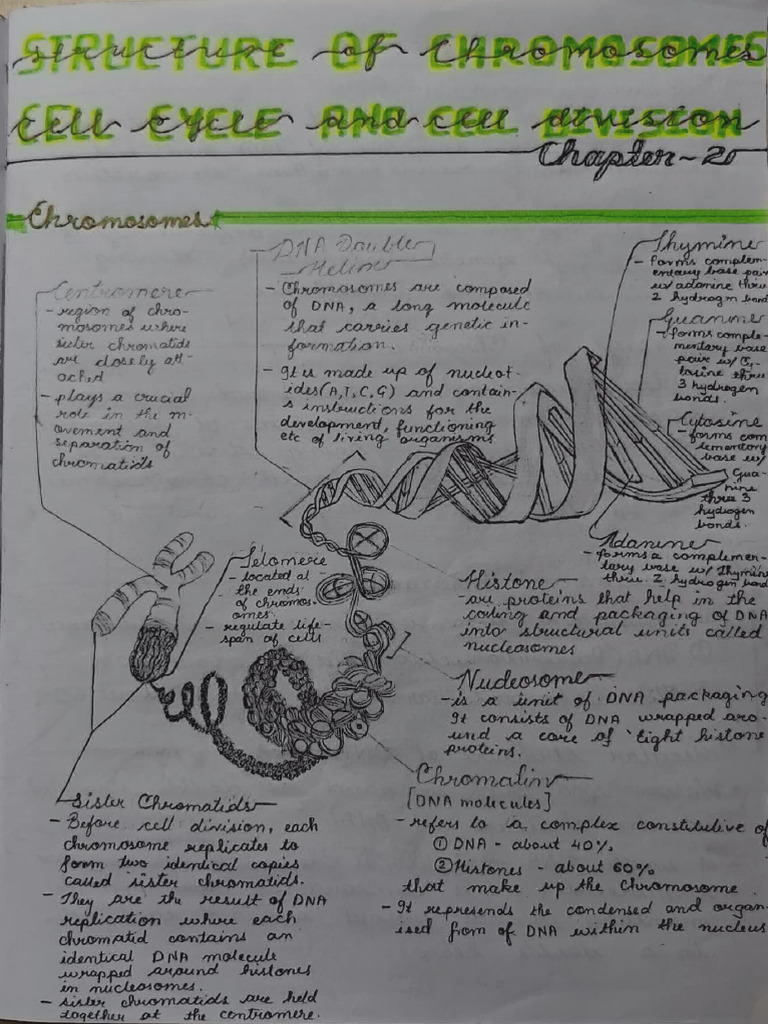 STRUCTURE OF CHROMOSOMES
CELL CYCLE AND CELL DIVISION
Chapter-2
Chromosomes
DNA Double
Helix
- Chromosomes are composed
of DNA, a long molecule
that carries genetic in-
formation.
- It is made up of nucleot-
ides(A,T,C,G) and contain-
s instructions for the
development, functioning
etc of living organisms
Centromere
- region of chro-
mosomes where
sister chromatids
are closely att-
ached
- plays a crucial
role in the m-
ovement and
separation of
chromatids
Thymine
- forms complem-
entary base pair
w/ adanine thru
2 hydrogen bonds
Guanine
- forms comple-
mentary base
pair w/ Cy-
tosine thru
3 hydrogen
bonds.
Cytosine
- forms com
plementary
base w/
Gua-
nine
thru 3
hydrogen
bonds.
Adanine
- forms a complemen-
tary base w/ Thymine
thru 2 hydrogen bond
Telomere
- located at
the ends
of chromos-
omes
- regulate life-
span of cells
Histone
- are proteins that help in the
coiling and packaging of DNA
into structural units called
nucleosomes
Nucleosome
- is a unit of DNA packaging
It consists of DNA wrapped aro-
und a core of eight histone
proteins.
Chromatin
[DNA molecules]
- refers to a complex constitutive of
① DNA - about 40%
② Histones - about 60%
that make up the Chromosome
- It represends the condensed and organ-
ised from of DNA within the nucleus
Sister Chromatids
- Before cell division, each
chromosome replicates to
form two identical copies
called sister chromatids.
- They are the result of DNA
replication where each
chromatid contains an
identical DNA molecule
wrapped around histones
in nucleosomes.
- sister chromatids are held
together at the centromere.